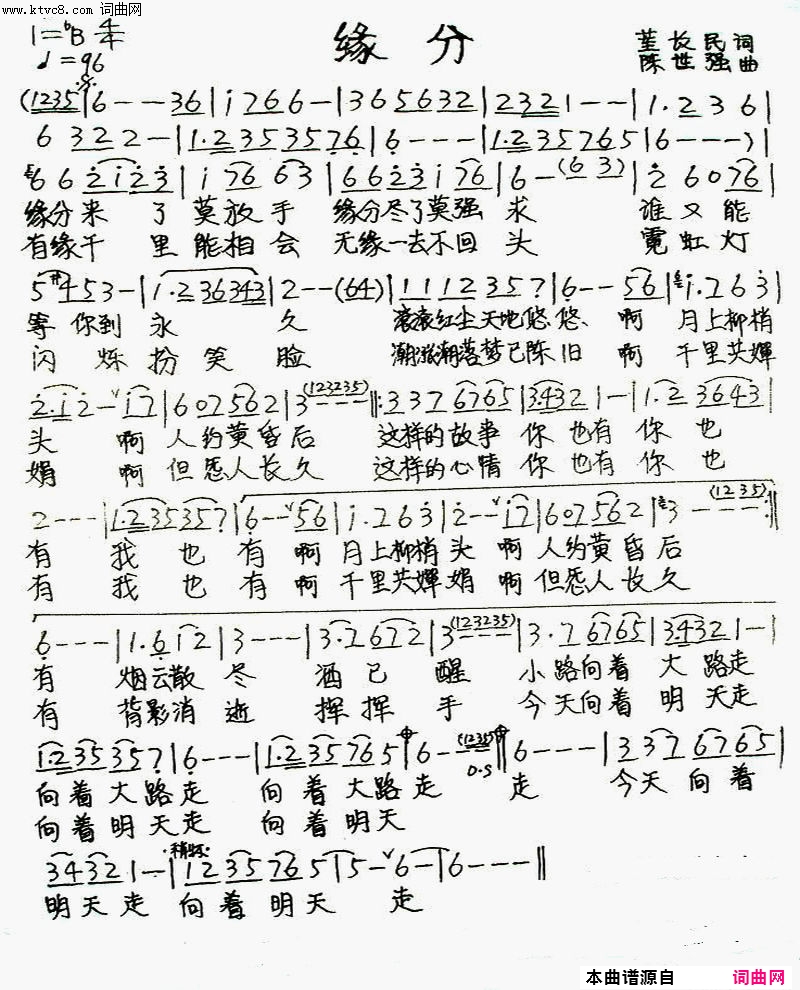 www.ktvc8.com 词曲网
1=ᵇB 4/4
缘分
♩=96
董长民 词
陈世强 曲
(1235|6---36|i766-|365632|2321--|1.236|
6322-|1.2353576|6---|1.235765|6---)|
662i23|i7663|6623i76|6-(63)|26076|
缘分来了莫放手 缘分尽了莫强求 谁又能
有缘千里能相会 无缘一去不回头 霓虹灯
5#453-|1.236343|2--(64)|1112357|6--56|i.763|
等你到永久 滚滚红尘天地悠悠 啊月上柳梢
闪烁扮笑脸 潮涨潮落梦已陈旧 啊千里共婵
2.i2-i7|607562|3---(123235)|:3376765|34321-|1.23643|
头啊人约黄昏后 这样的故事你也有你也
娟啊但愿人长久 这样的心情你也有你也
2---|1.235357|6--56|i.763|2--i7|607562|3---(1235):|
有我也有啊月上柳梢头啊人约黄昏后
有我也有啊千里共婵娟啊但愿人长久
6---|1.612|3---|3.7672|3---(123235)|3.76765|34321-|
有 烟云散尽 酒已醒 小路向着大路走
有 背影消逝 挥挥手 今天向着明天走
1.235357|6---|1.235765|6-(1235)|6---|3376765|
D.S
向着大路走 向着大路走 走 今天向着
向着明天走 向着明天
34321-|1235765|5-6-|6---||
明天走 向着明天 走
本曲谱源自
词曲网